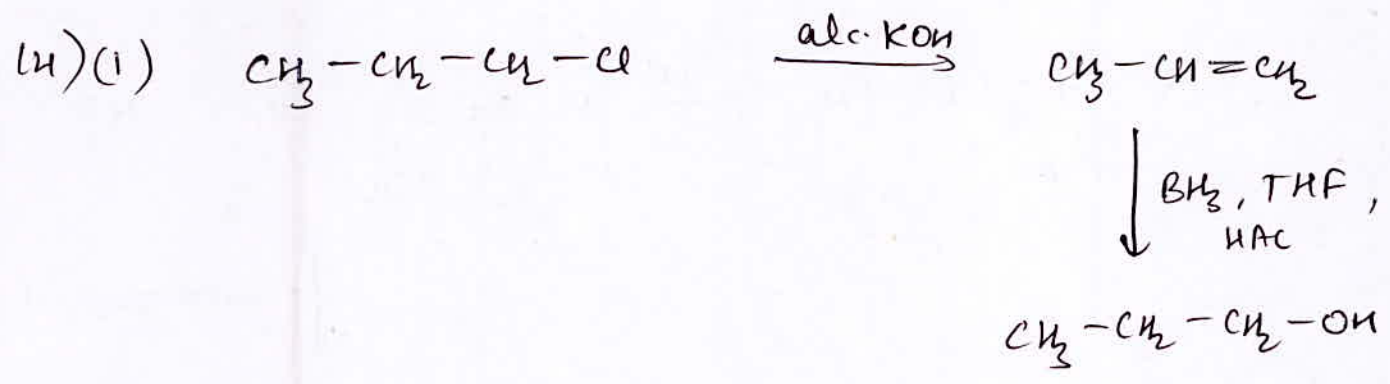 (4)(1) CH3-CH2-CH2-Cl alc. KOH CH3-CH=CH2
BH3, THF,
HAC
CH3-CH2-CH2-OH